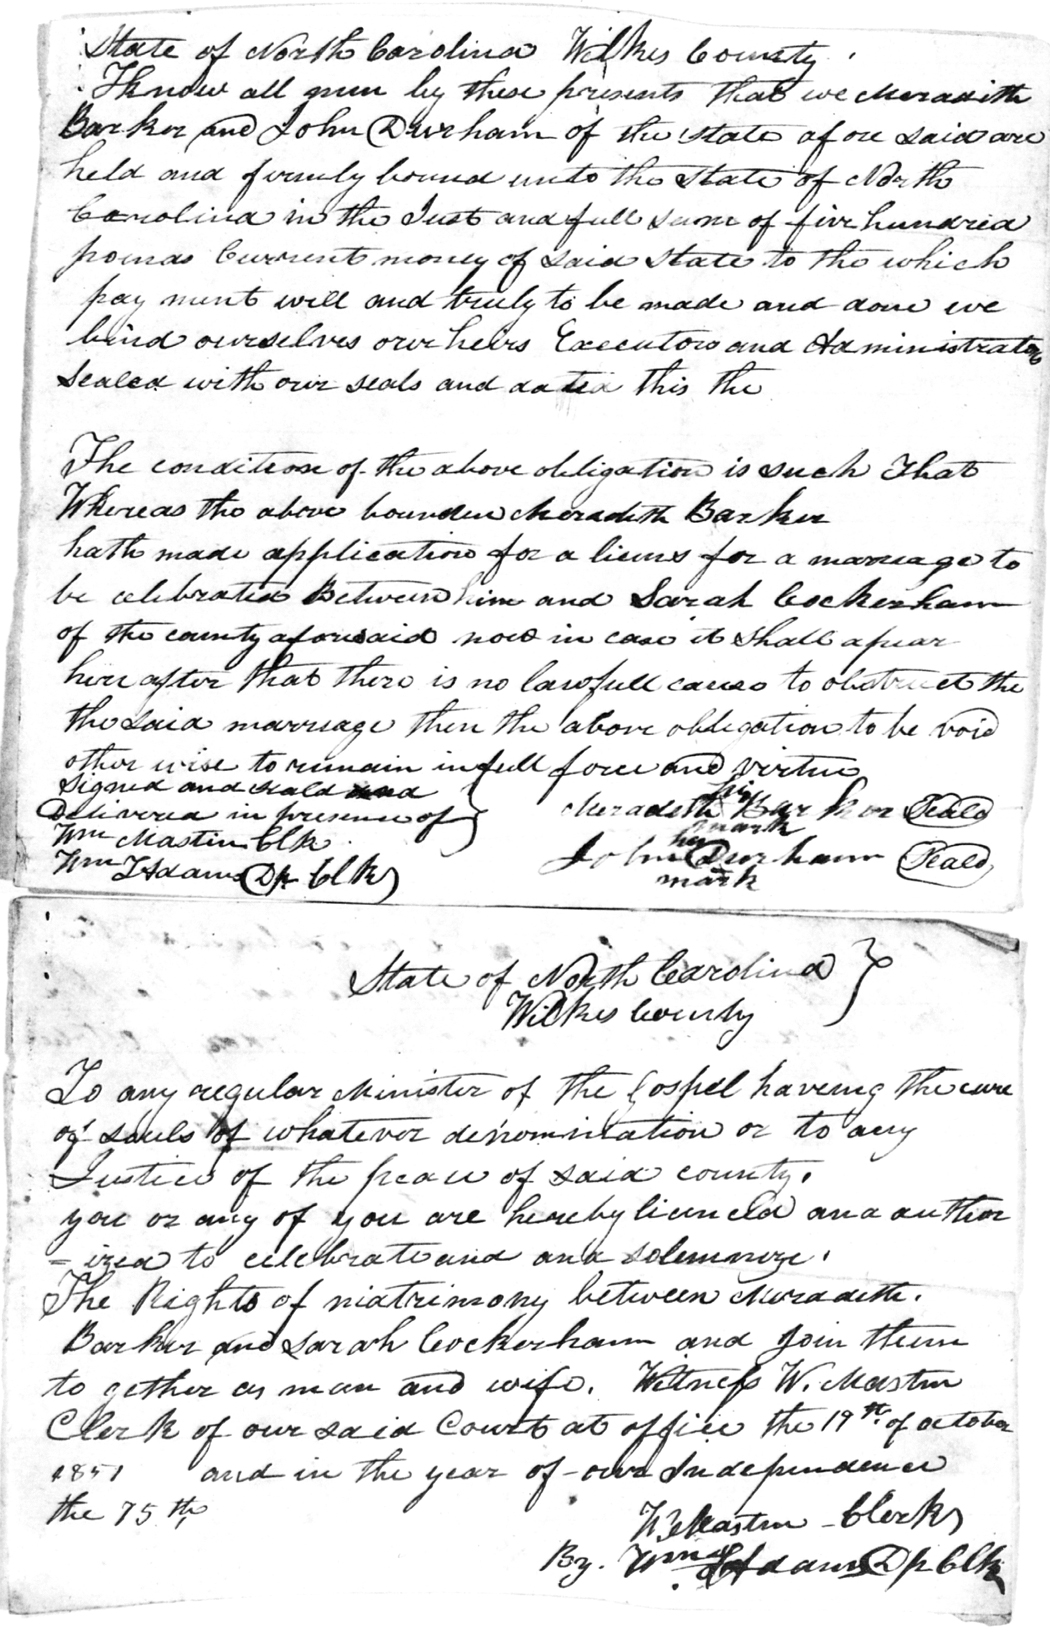 State of North Carolina Wilkes County
Know all men by these presents that we Meradith
Barker and John Durham of the state afore said are
held and firmly bound unto the State of North
Carolina in the Just and full sum of five hundred
pounds Current money of said State to the which
pay ment will and truly to be made and done we
bind ourselves our heirs Executors and Administrators
Sealed with our seals and dated this the
The condition of the above obligation is such That
Whereas the above bounden Meradith Barker
hath made application for a liens for a marriage to
be celebrated Between him and Sarah Cockerham
of the county aforesaid now in case it shall apear
here after that there is no lawfull cause to obstruct the
the said marriage then the above obligation to be void
other wise to remain in full force and virtue
Signed and seald and
Delivered in presence of
Wm Mastin Clk
Wm Adams Dp Clk
his
Meradith Barker Seald
mark
his
John Durham Seald
mark
State of North Carolina
Wilkes County
To any regular Minister of the Gospel haveing the cure
of souls of whatever denomination or to any
Justice of the peace of said county.
you or any of you are hereby licensed and author
=ized to celebrate and and solemnize.
The Rights of matrimony between Meradith.
Barker and Sarah Cockerham and Join them
to gether as man and wife. Witness W. Mastin
Clerk of our said Court at office the 19th of october
1851 and in the year of our Independence
the 75th
W Mastin Clerk
By. Wm Adams Dp Clk